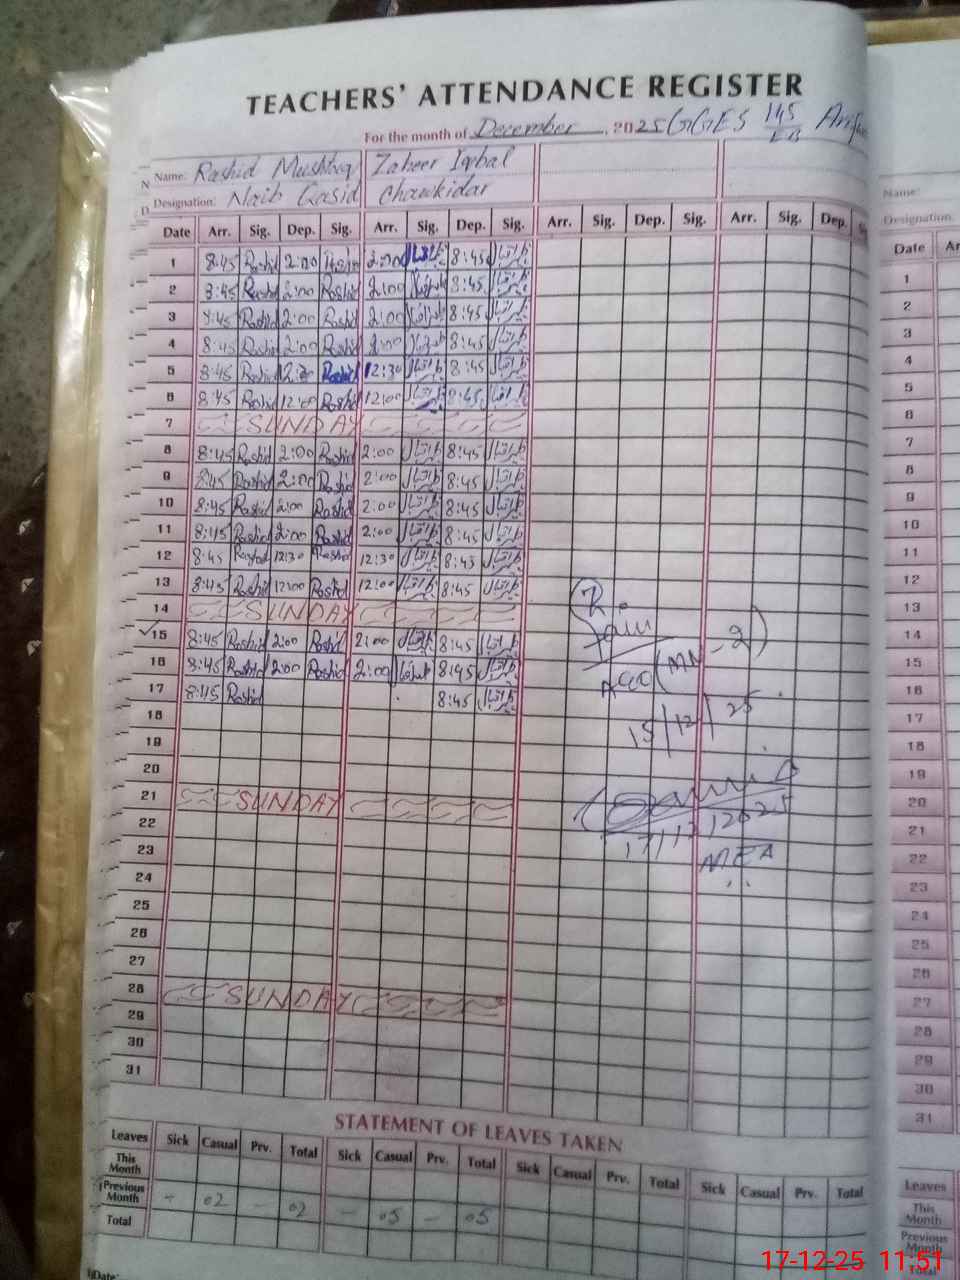 TEACHERS' ATTENDANCE REGISTER
For the month of December, 2025 GGES 145/EB
Name: Rashid Mushtaq Zaheer Iqbal
Designation: Naib Qasid Chowkidar
Date Arr. Sig. Dep. Sig. Arr. Sig. Dep. Sig. Arr. Sig. Dep. Sig. Arr. Sig. Dep.
1 8:45 Rashid 2:00 Rashid 2:00 8:45
2 8:45 Rashid 2:00 Rashid 2:00 8:45
3 8:45 Rashid 2:00 Rashid 2:00 8:45
4 8:45 Rashid 2:00 Rashid 2:00 8:45
5 8:45 Rashid Rashid 12:30 8:45
6 8:45 Rashid 12:00 Rashid 12:00 8:45
7 SUNDAY
8 8:45 Rashid 2:00 Rashid 2:00 8:45
9 8:45 Rashid 2:00 Rashid 2:00 8:45
10 8:45 Rashid 2:00 Rashid 2:00 8:45
11 8:45 Rashid 2:00 Rashid 2:00 8:45
12 8:45 Rashid 12:30 Rashid 12:30 8:45
13 8:45 Rashid 12:00 Rashid 12:00 8:45
14 SUNDAY
15 8:45 Rashid 2:00 Rashid 2:00 8:45
16 8:45 Rashid 2:00 Rashid 2:00 8:45
17 8:45 Rashid 8:45
18
19
20
21 SUNDAY
22
23
24
25
26
27
28 SUNDAY
29
30
31
15/12/25
17/12/2025
MEA
STATEMENT OF LEAVES TAKEN
Leaves Sick Casual Prv. Total Sick Casual Prv. Total Sick Casual Prv. Total Sick Casual Prv. Total
This Month
Previous Month - 02 - 02 - 05 - 05
Total
Date:
Name:
Designation:
Date
1
2
3
4
5
6
7
8
9
10
11
12
13
14
15
16
17
18
19
20
21
22
23
24
25
26
27
28
29
30
31
Leaves
This Month
Previous Month
Total
17-12-25 11:51